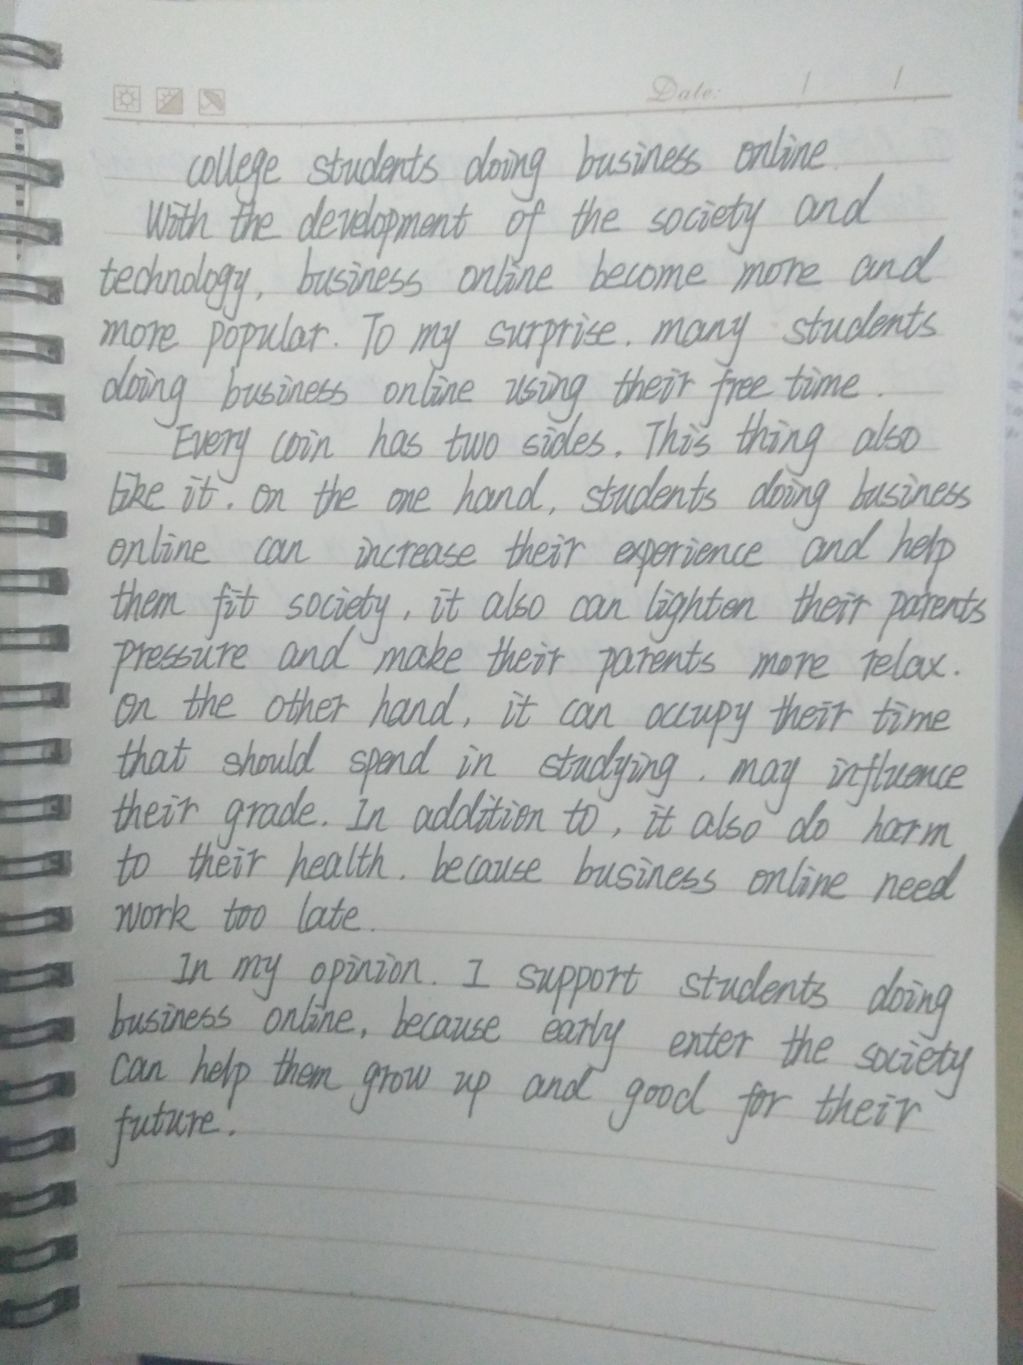 Date: / /
college students doing business online
With the development of the society and
technology, business online become more and
more popular. To my surprise. many students
doing business online using their free time.
Every coin has two sides. This thing also
like it. on the one hand, students doing business
online can increase their experience and help
them fit society, it also can lighten their parents
pressure and make their parents more relax.
on the other hand, it can occupy their time
that should spend in studying. may influence
their grade. In addition to, it also do harm
to their health. because business online need
work too late.
In my opinion. I support students doing
business online, because early enter the society
can help them grow up and good for their
future.